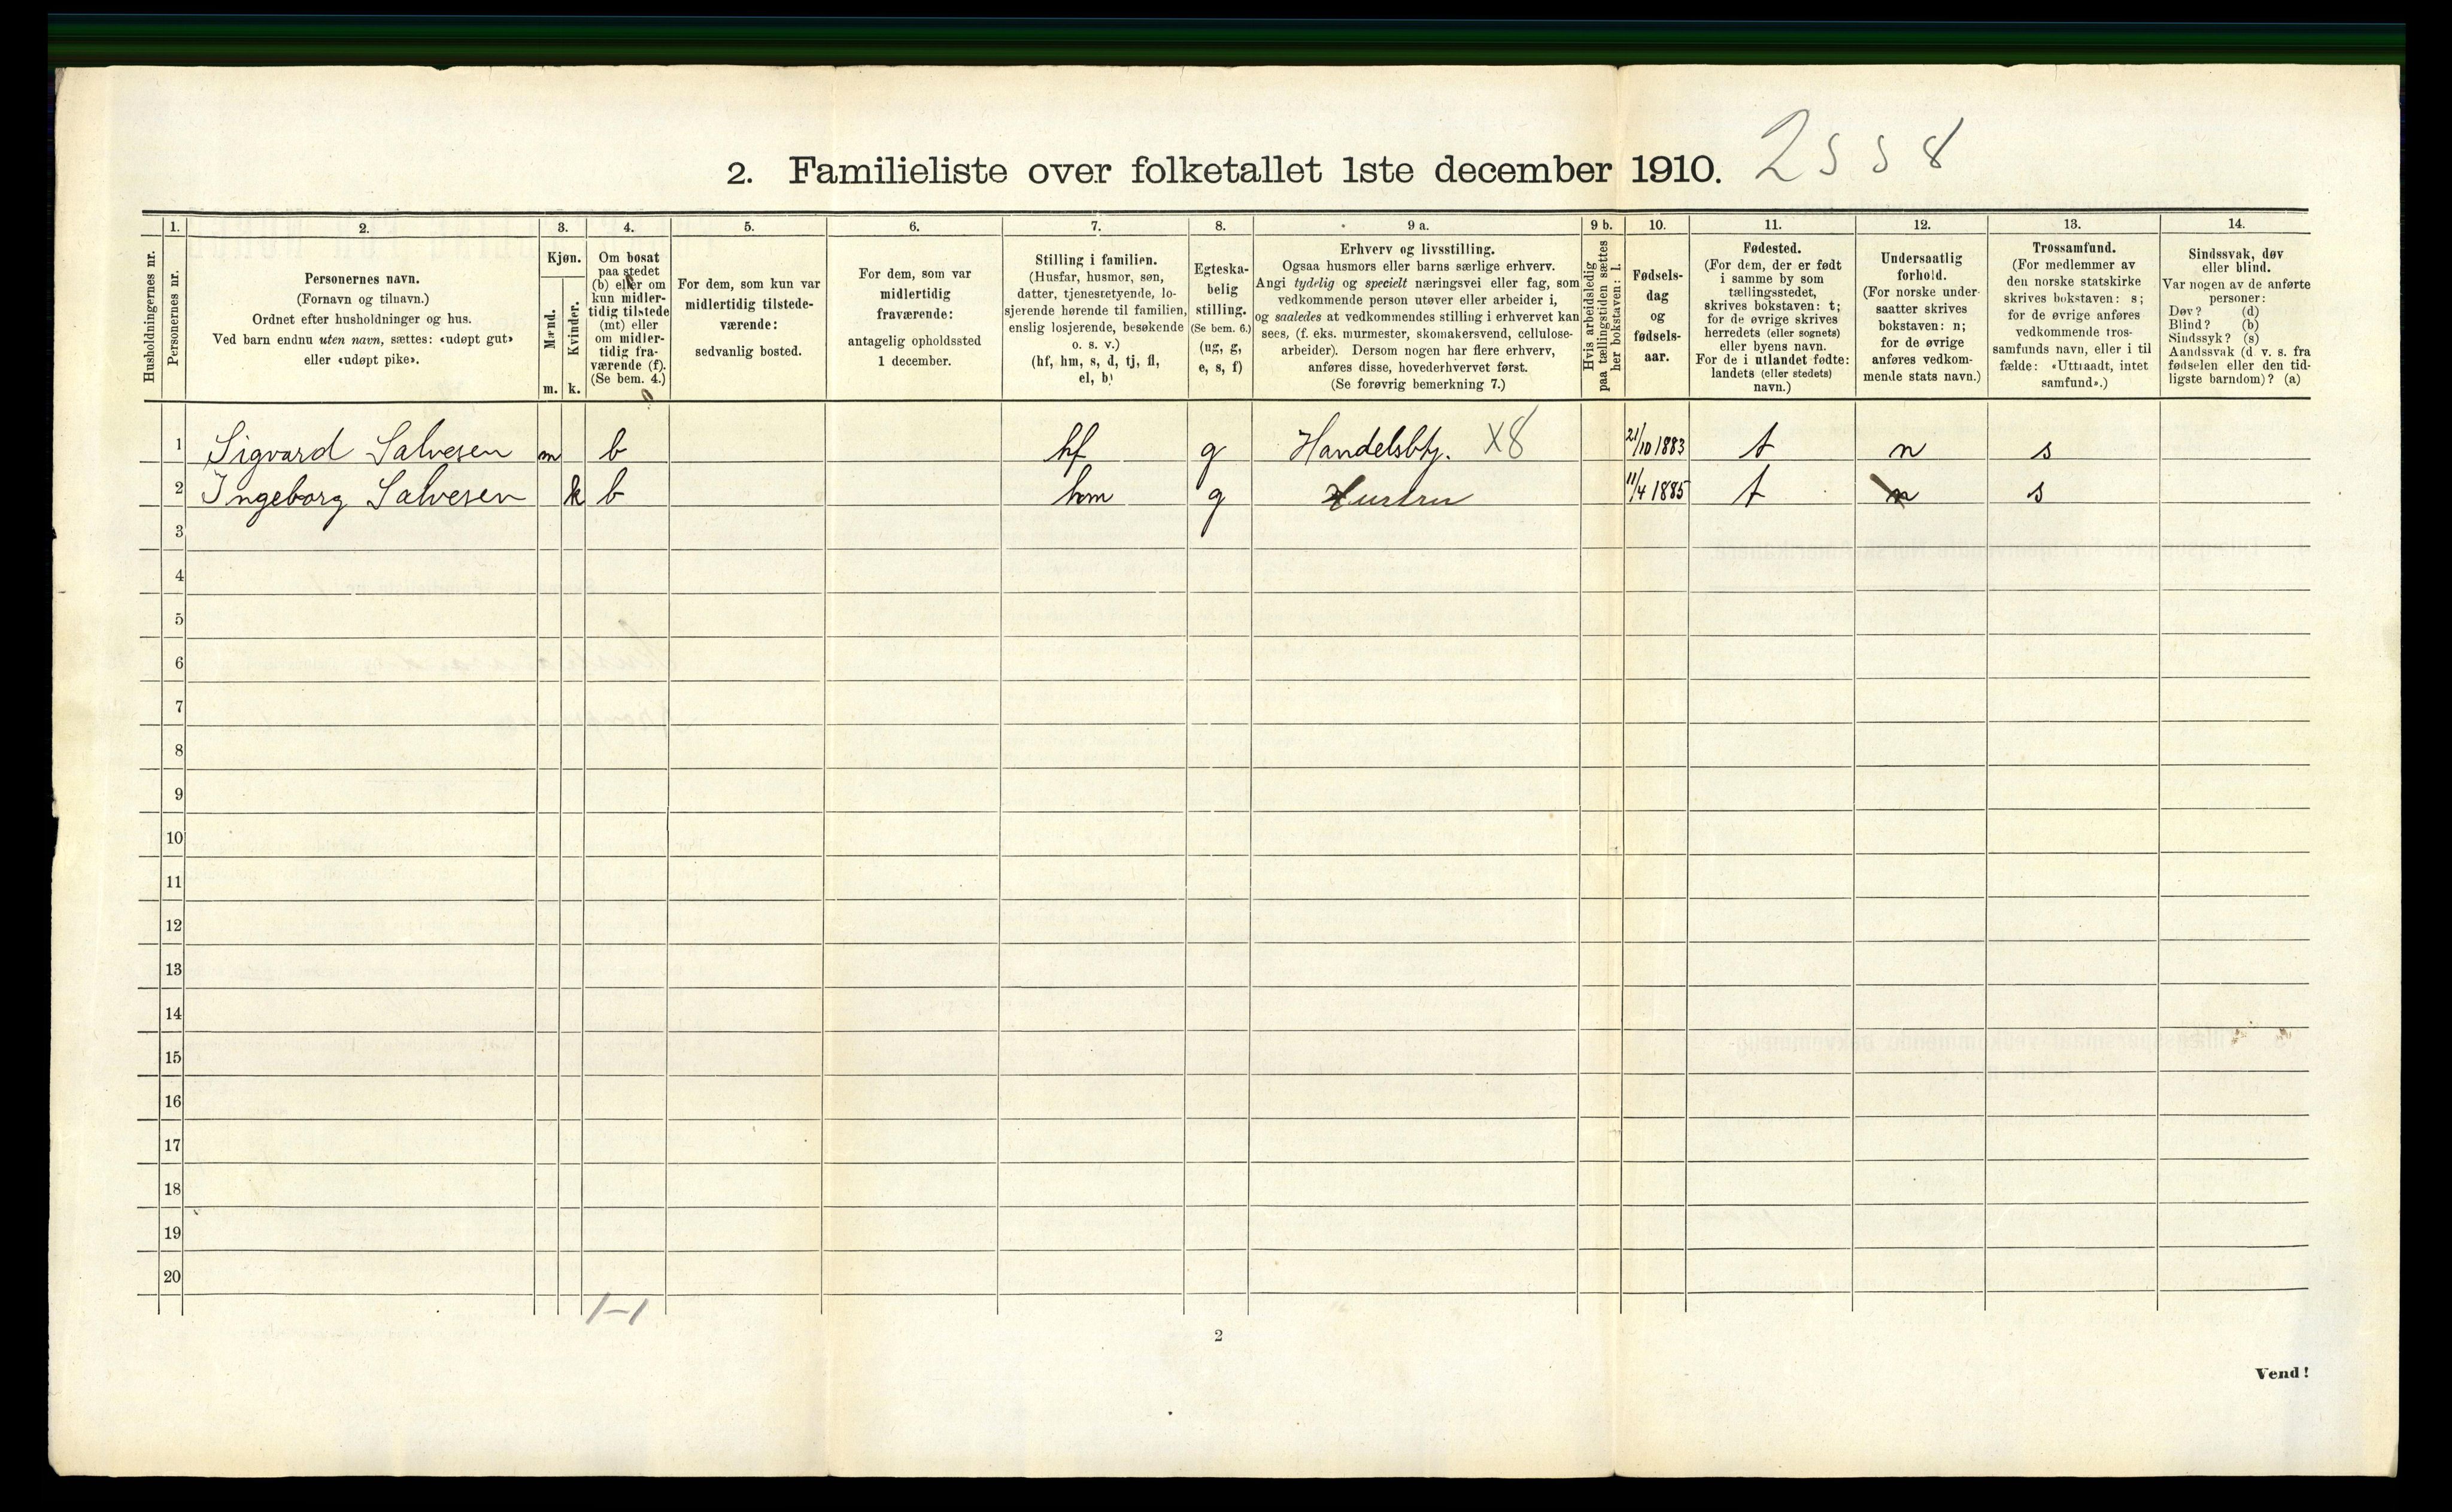 2. Familieliste over folketallet 1ste december 1910. 2558
Husholdningernes nr.
1.
Personernes nr.
2.
Personernes navn.
(Fornavn og tilnavn.)
Ordnet efter husholdninger og hus.
Ved barn endnu uten navn, sættes: «udøpt gut»
eller «udøpt pike».
3.
Kjøn.
Mænd.
m.
Kvinder.
k.
4.
Om bosat
paa stedet
(b) eller om
kun midler-
tidig tilstede
(mt) eller
om midler-
tidig fra-
værende (f).
(Se bem. 4.)
5.
For dem, som kun var
midlertidig tilstede-
værende:
sedvanlig bosted.
6.
For dem, som var
midlertidig
fraværende:
antagelig opholdssted
1 december.
7.
Stilling i familien.
(Husfar, husmor, søn,
datter, tjenestetyende, lo-
sjerende hørende til familien,
enslig losjerende, besøkende
o. s. v.)
(hf, hm, s, d, tj, fl,
el, b)
8.
Egteska-
belig
stilling.
(Se bem. 6.)
(ug, g,
e, s, f)
9 a.
Erhverv og livsstilling.
Ogsaa husmors eller barns særlige erhverv.
Angi tydelig og specielt næringsvei eller fag, som
vedkommende person utøver eller arbeider i,
og saaledes at vedkommendes stilling i erhvervet kan
sees, (f. eks. murmester, skomakersvend, cellulose-
arbeider). Dersom nogen har flere erhverv,
anføres disse, hovederhvervet først.
(Se forøvrig bemerkning 7.)
9 b.
Hvis arbeidsledig
paa tællingstiden sættes
her bokstaven: l.
10.
Fødsels-
dag
og
fødsels-
aar.
11.
Fødested.
(For dem, der er født
i samme by som
tællingsstedet,
skrives bokstaven: t;
for de øvrige skrives
herredets (eller sognets)
eller byens navn.
For de i utlandet fødte:
landets (eller stedets)
navn.)
12.
Undersaatlig
forhold.
(For norske under-
saatter skrives
bokstaven: n;
for de øvrige
anføres vedkom-
mende stats navn.)
13.
Trossamfund.
(For medlemmer av
den norske statskirke
skrives bokstaven: s;
for de øvrige anføres
vedkommende tros-
samfunds navn, eller i til
fælde: «Uttraadt, intet
samfund».)
14.
Sindssvak, døv
eller blind.
Var nogen av de anførte
personer:
Døv? (d)
Blind? (b)
Sindssyk? (s)
Aandssvak (d v. s. fra
fødselen eller den tid-
ligste barndom)? (a)
1 Sigvard Salvesen m b hf g Handelsbtj. X8 21/10 1883 t n s
2 Ingeborg Salvesen k b hm g Hustru 11/4 1885 t n s
3
4
5
6
7
8
9
10
11
12
13
14
15
16
17
18
19
20
1-1
2
Vend!